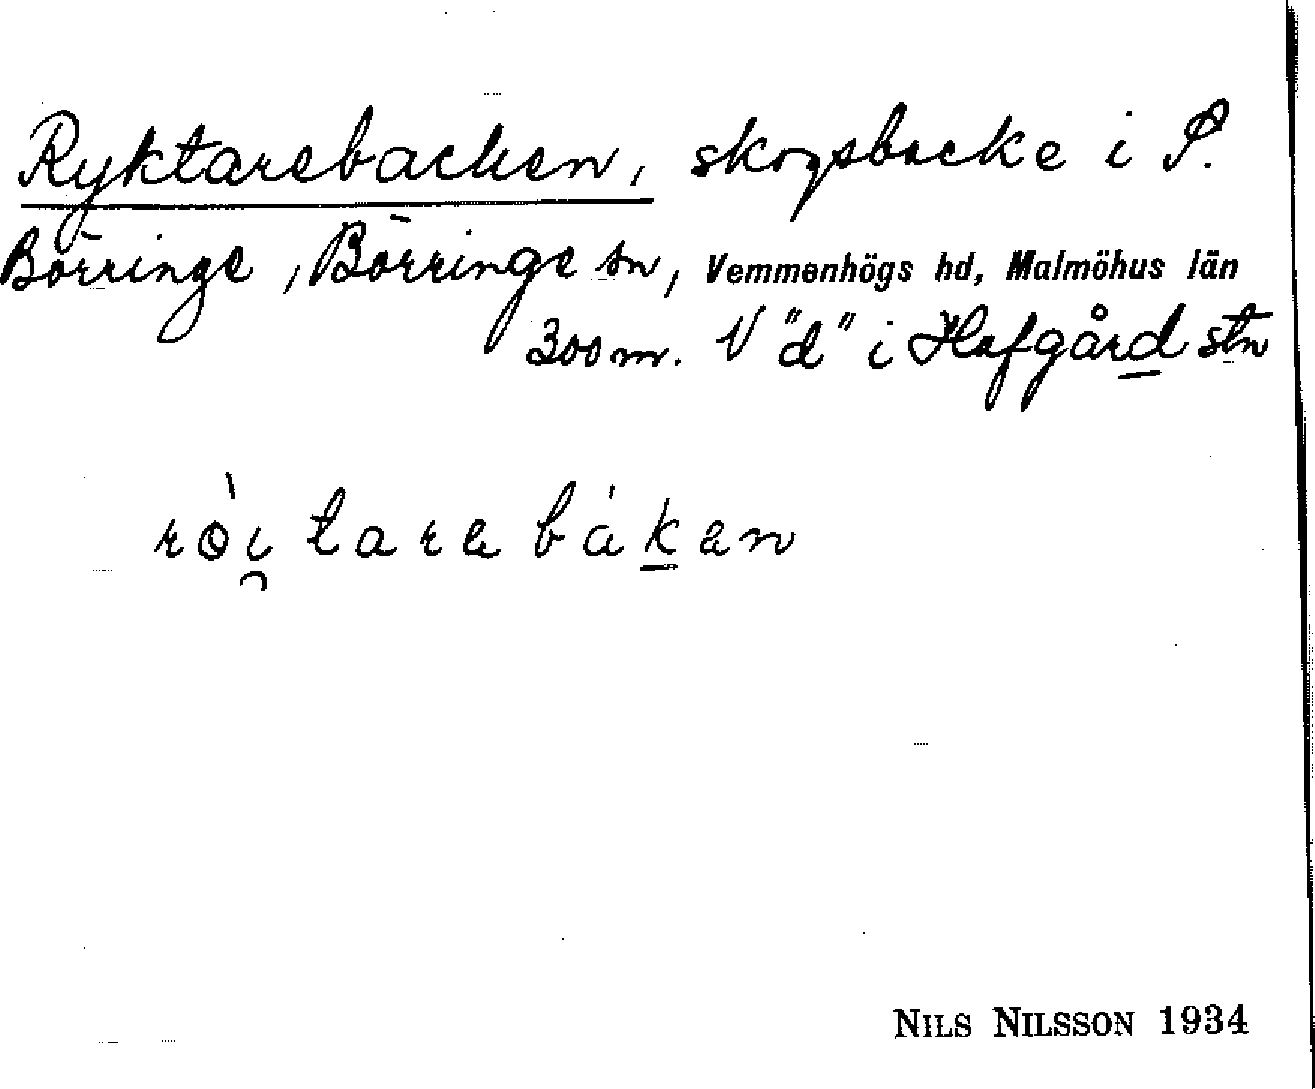 Ryktarebacken, skogsbacke i S.
Börringe, Börringe sn, Vemmenhögs hd, Malmöhus län
300 m. V "d" i Hafgård stn
rò̀i̯tarebáken
NILS NILSSON 1934